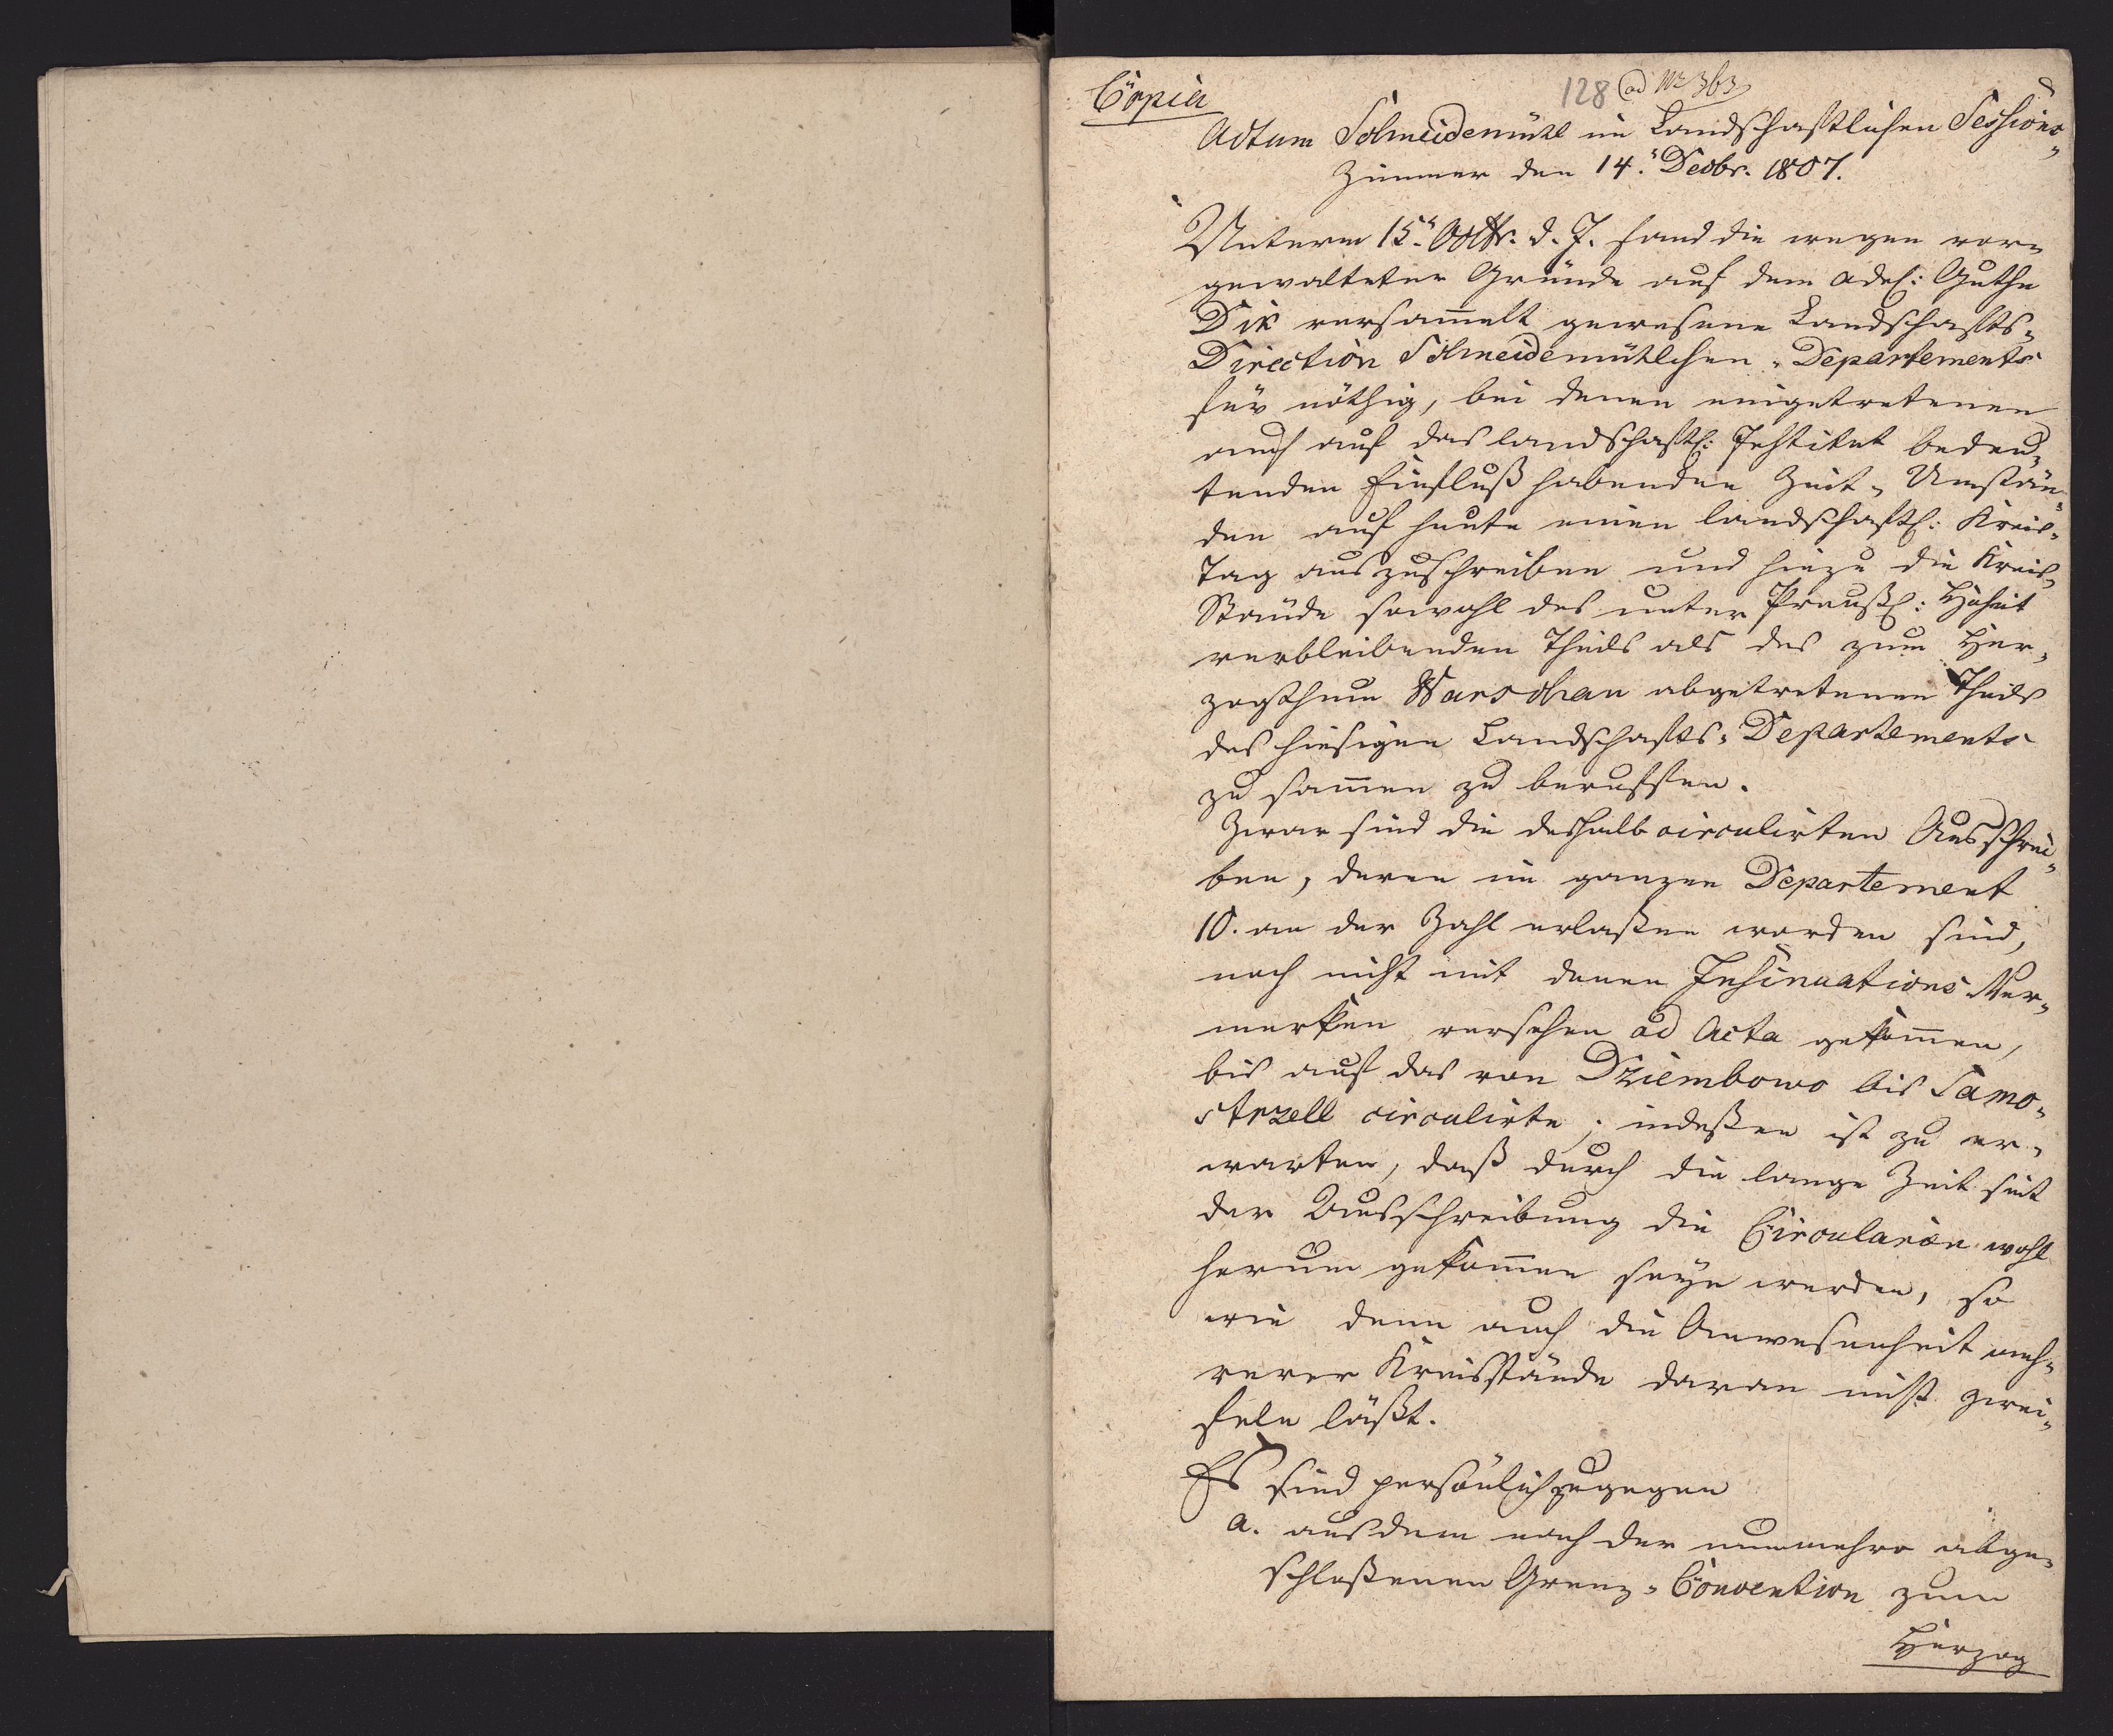 Copia
128 ad Nr 363
Actum Schneidemühl im Landschaftlichen Sessions-
Zimmer den 14. Decbr. 1807.
Unterm 15. Octbr. d. J. fand die wegen vor-
gewalteter Gründe auf dem adel: Guthe
Dik versam̄elt gewesene Landschafts-
Direction Schneidemühlschen-Departements
für nöthig, bei denen eingetretenen
auch auf das landschaftl: Institut bedeu-
tenden Einfluß habenden Zeit-Umstän-
den auf heute einen landschaftl: Kreis-
Tag auszuschreiben und hiezu die Kreis-
Stände sowohl des unter Preußl: Hoheit
verbleibenden Theils als des zum Her-
zogthum Warschau abgetretenen Theils
des hiesigen Landschafts-Departements
zu sam̄en zu beruffen.
Zwar sind die deshalb circulirten Ausschrei-
ben, deren im ganzen Departement
10. an der Zahl erlaßen worden sind,
noch nicht mit denen Insinuations Ver-
merken versehen ad Acta gekom̄en,
bis auf das von Dziembowo bis Samo-
strzell circulirte; indeßen ist zu er-
warten, daß durch die lange Zeit seit
der Ausschreibung die Circularien wohl
herum gekom̄en seyn werden, so
wie denn auch die Anwesenheit meh-
rerer Kreisstände daran nicht zwei-
feln läßt.
Es sind persönlich zugegen
a. aus dem nach der nunmehro abge-
schloßenen Grenz-Convention zum
Herzog